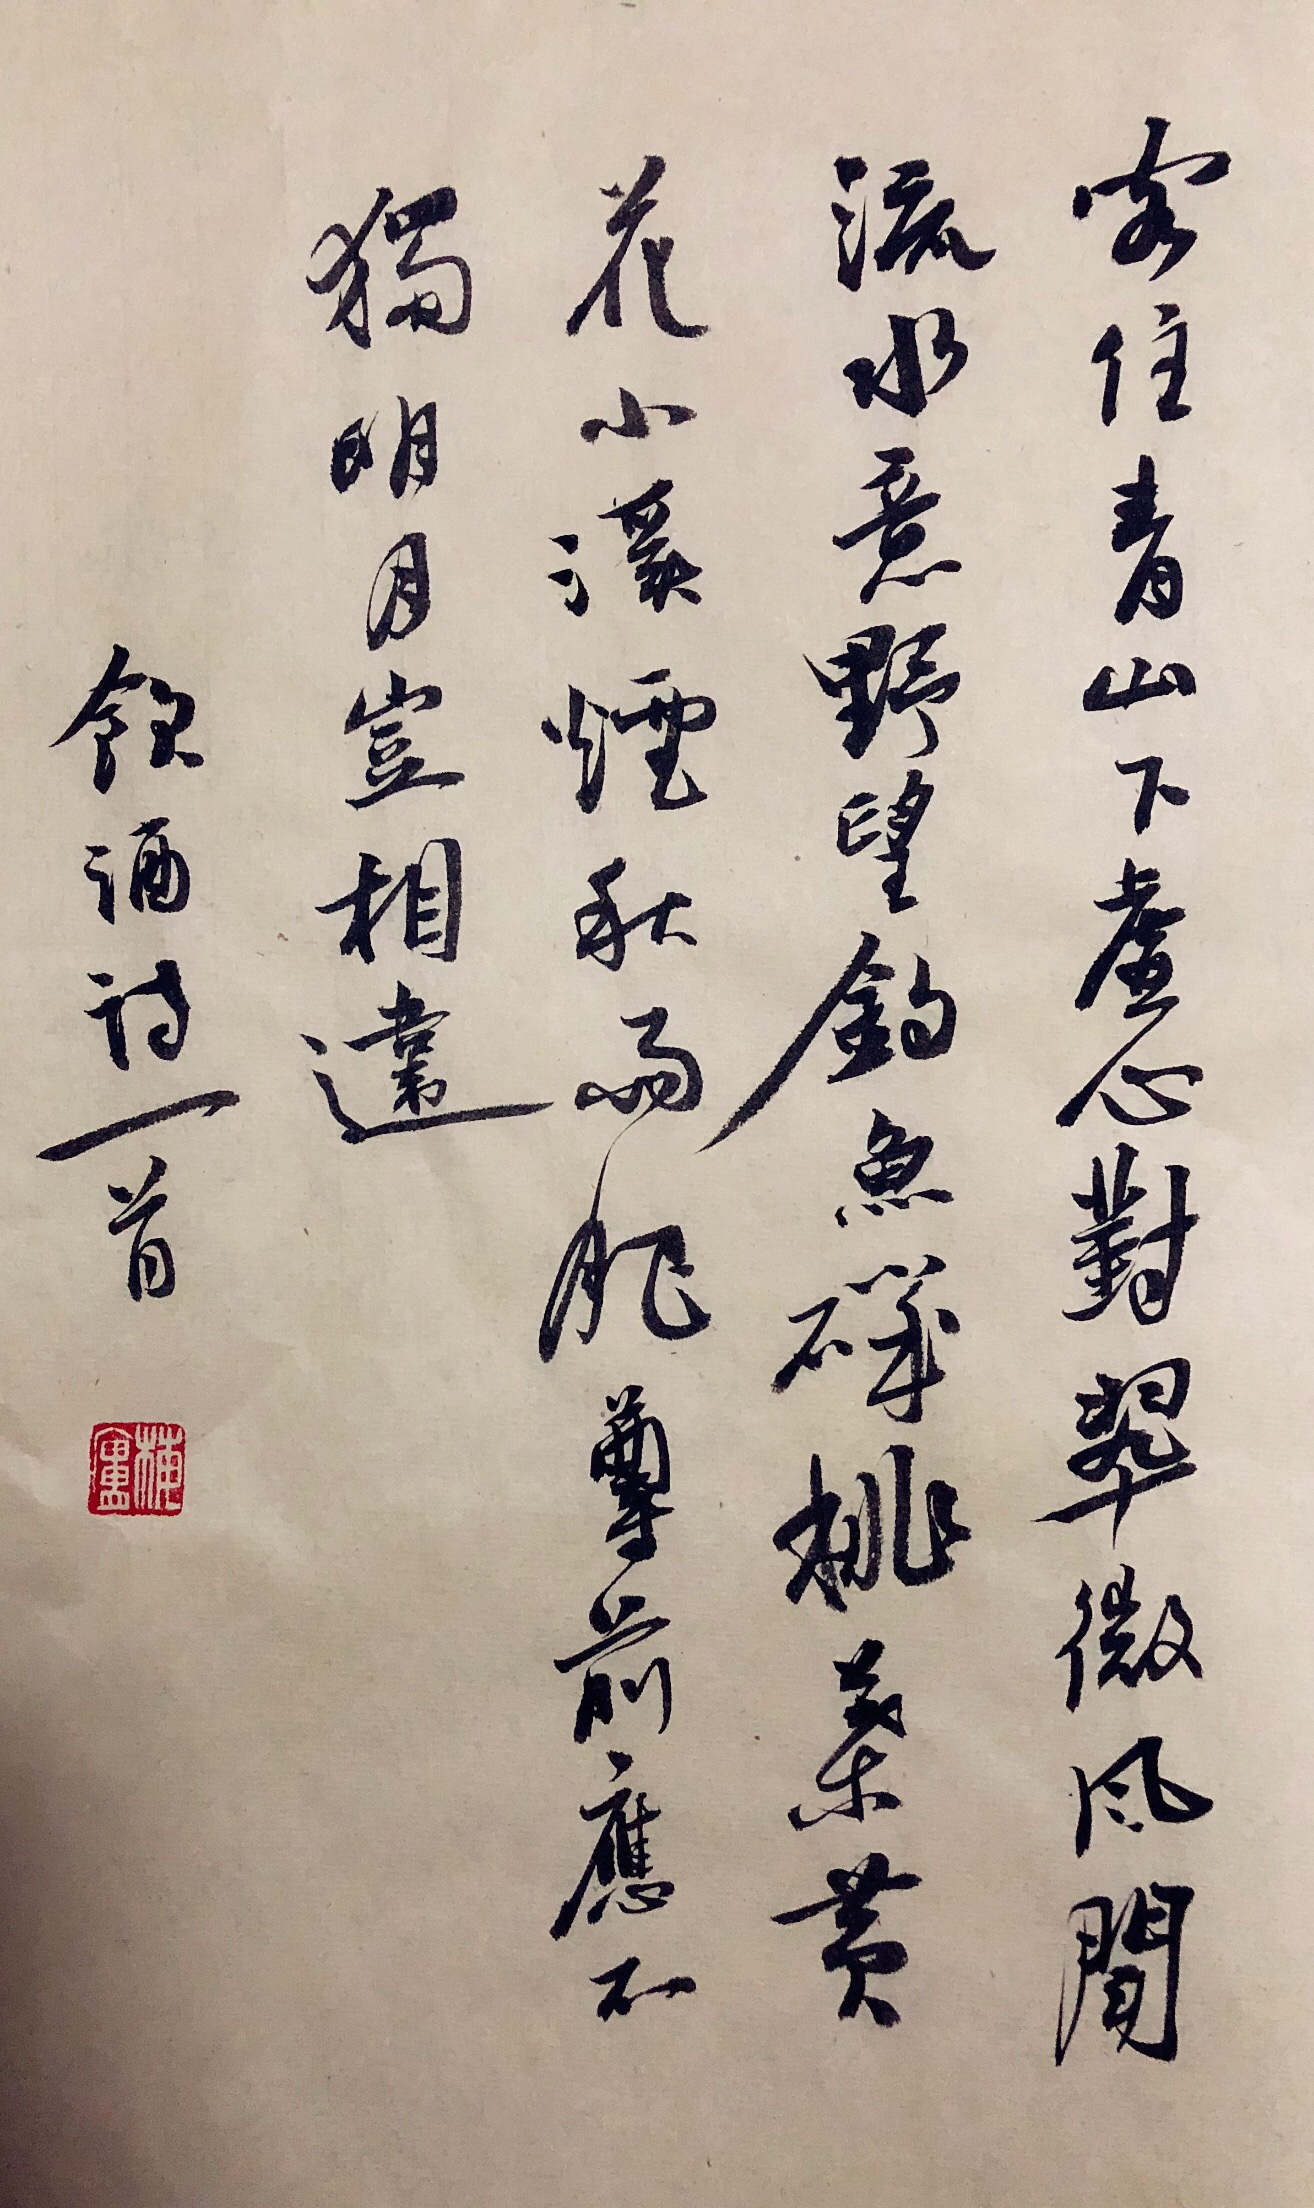 家住青山下虛心對翠微風聞
流水意野望釣魚磯桃葉黃
花小溪煙秋雨肥尊前應不
獨明月豈相違
飲酒詩一首
梅